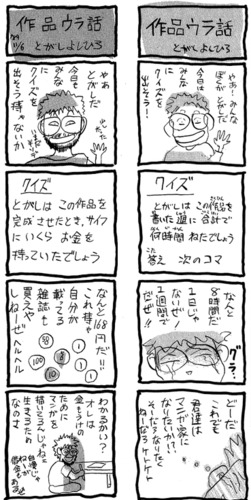 作品ウラ話
とがしよしひろ
やぁ みんな
ぼくがとがしだ
今日は
みんなに
クイズを
出そう!
クイズ
とがしはこの作品を
書いた週に合計で
何時間ねたでしょう
答え 次のコマ
なんと
8時間だ
1日じゃ
ないぜ!
1週間で
だぜ!!
グラ
どーだ
これでも
君達は
マンガ家に
なりたいか!!
そーだろなりたく
ねーだろ ケケケケ
作品ウラ話
とがしよしひろ
やあ
とがしだ
今日も
みんなに
クイズを
出そうじゃないか
クイズ
とがしはこの作品を
完成させたとき、サイフ
にいくらお金を
持っていたでしょう
なんと 168円だ!!
これ持ゃ
自分が
載ってる
雑誌も
買えや
しねーぜ
ヘルヘル
100
50
10
5
1
1
1
わかるかい?
オレは
金もうけの
ために
マンガを
描いてるんじゃねェ
生きるため
なのさ